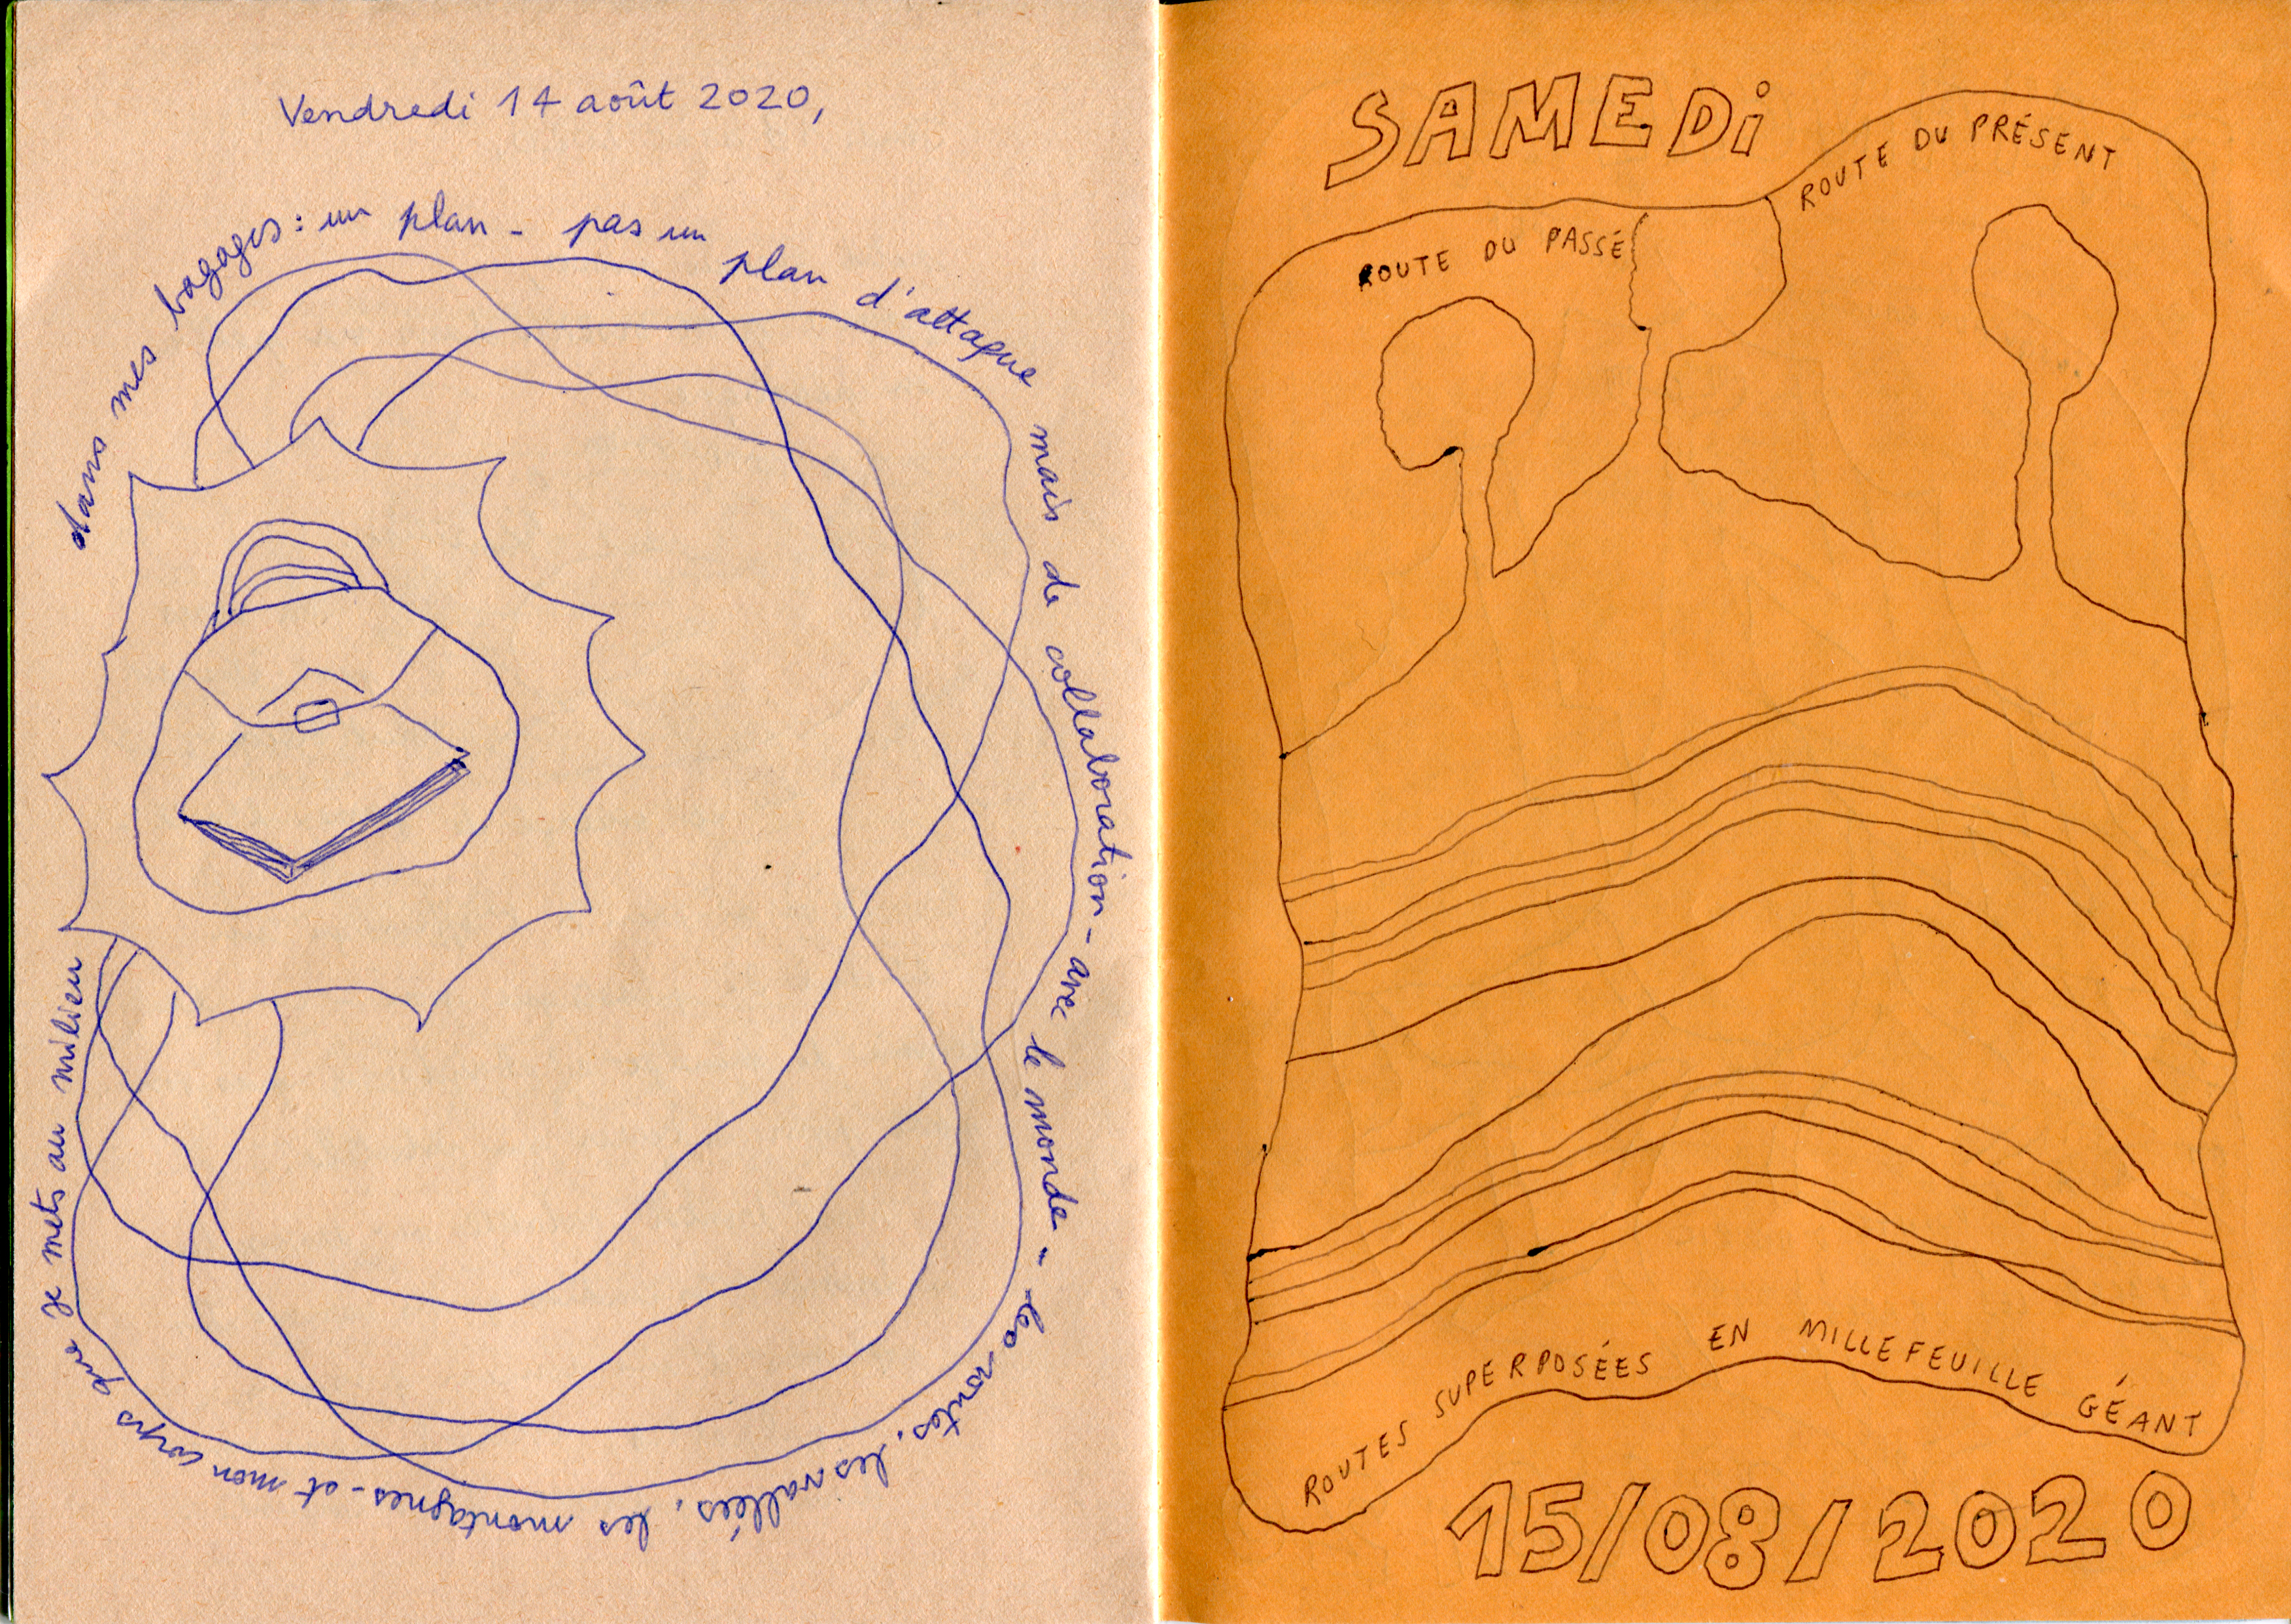 Vendredi 14 août 2020,
dans mes bagages : un plan - pas un plan d'attaque mais de collaboration - avec le monde - les routes, les vallées, les montagnes - et mon corps que je mets au milieu
SAMEDi
ROUTE DU PASSÉ
ROUTE DU PRÉSENT
ROUTES SUPERPOSÉES EN MILLEFEUILLE GÉANT
15/08/2020